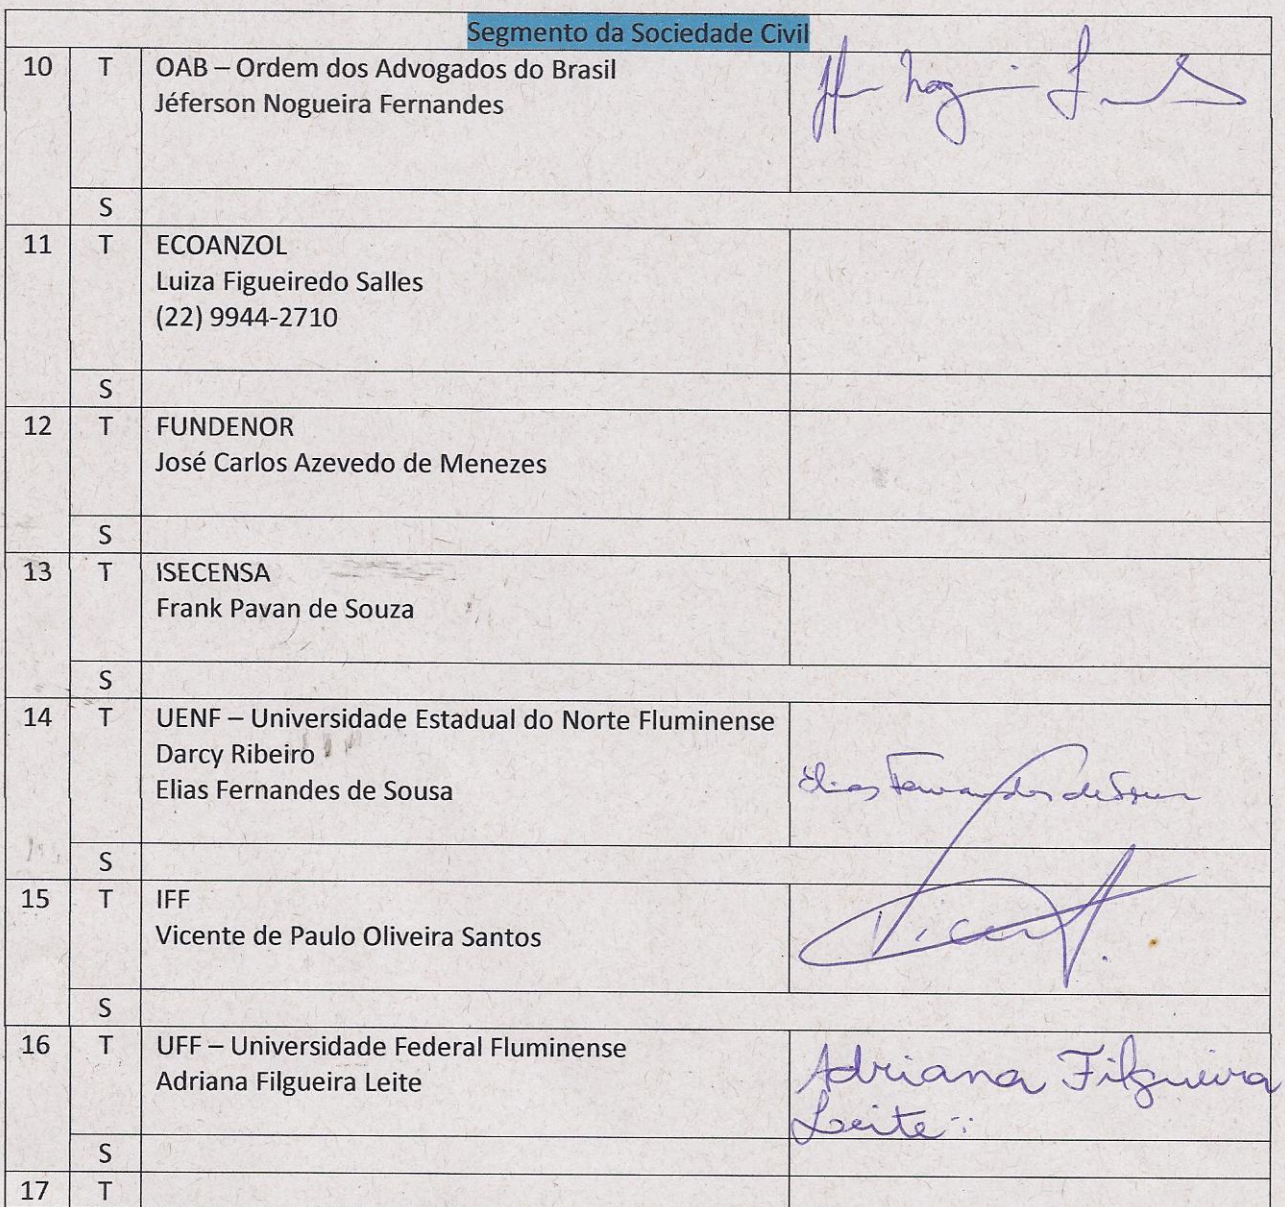 Segmento da Sociedade Civil
10 T OAB – Ordem dos Advogados do Brasil
Jéferson Nogueira Fernandes
S
11 T ECOANZOL
Luiza Figueiredo Salles
(22) 9944-2710
S
12 T FUNDENOR
José Carlos Azevedo de Menezes
S
13 T ISECENSA
Frank Pavan de Souza
S
14 T UENF – Universidade Estadual do Norte Fluminense
Darcy Ribeiro
Elias Fernandes de Sousa Elias Fernandes de Sousa
S
15 T IFF
Vicente de Paulo Oliveira Santos
S
16 T UFF – Universidade Federal Fluminense
Adriana Filgueira Leite Adriana Filgueira
Leite
S
17 T